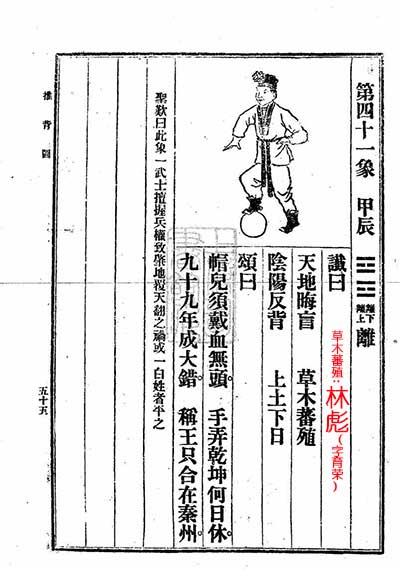 第四十一象 甲辰 離下離上 離
讖曰
草木蕃殖:林彪(字育荣)
天地晦盲 草木蕃殖
陰陽反背 上土下日
頌曰
帽兒須戴血無頭。手弄乾坤何日休。
九十九年成大錯。稱王只合在秦州。
聖歎曰此象一武士擅握兵權致肇地覆天翻之禍或一白姓者平之
推背圖
五十五